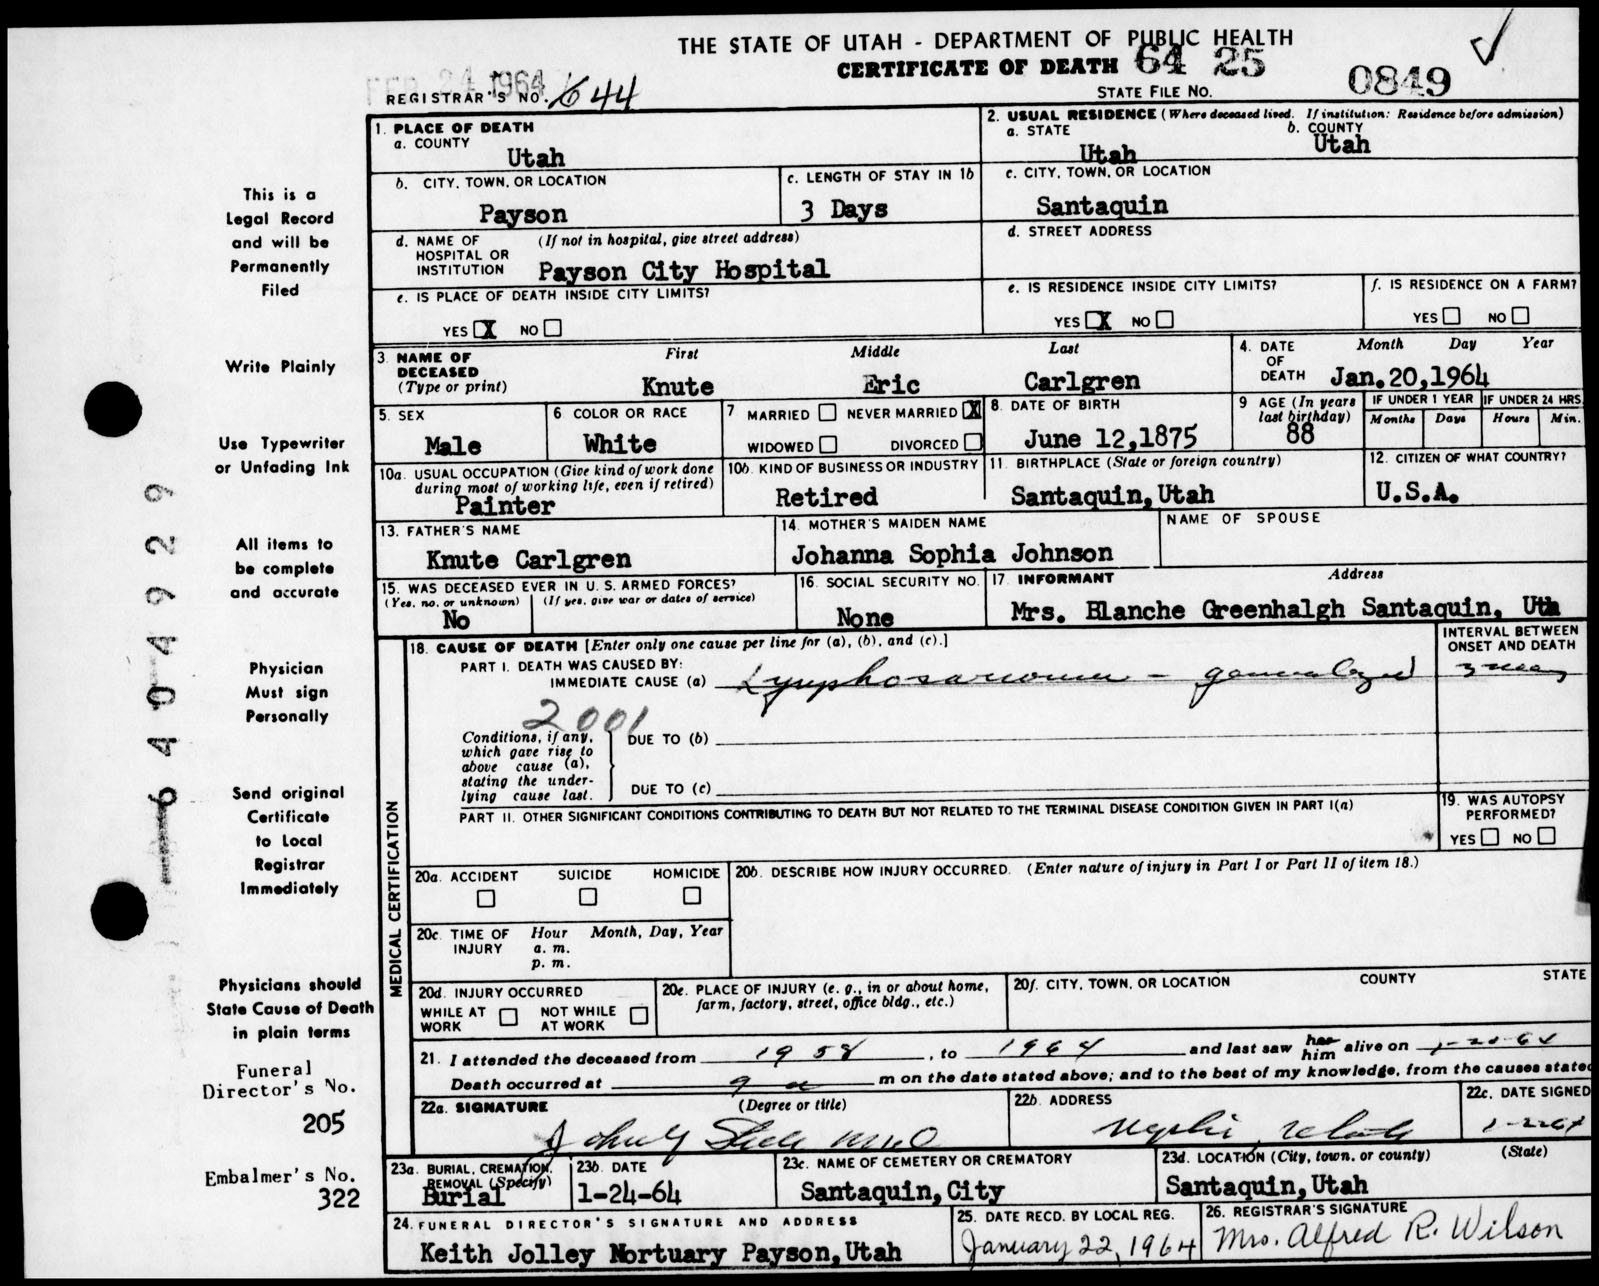 THE STATE OF UTAH - DEPARTMENT OF PUBLIC HEALTH
CERTIFICATE OF DEATH 64 25
FEB 24 1964
REGISTRAR'S NO. 644
STATE FILE NO. 0849
1. PLACE OF DEATH
a. COUNTY
Utah
2. USUAL RESIDENCE (Where deceased lived. If institution: Residence before admission)
a. STATE b. COUNTY
Utah Utah
b. CITY, TOWN, OR LOCATION
Payson
c. LENGTH OF STAY IN 1b
3 Days
c. CITY, TOWN, OR LOCATION
Santaquin
d. NAME OF HOSPITAL OR INSTITUTION (If not in hospital, give street address)
Payson City Hospital
d. STREET ADDRESS
e. IS PLACE OF DEATH INSIDE CITY LIMITS?
YES X NO
e. IS RESIDENCE INSIDE CITY LIMITS?
YES X NO
f. IS RESIDENCE ON A FARM?
YES NO
3. NAME OF DECEASED (Type or print)
First Middle Last
Knute Eric Carlgren
4. DATE OF DEATH Month Day Year
Jan.20,1964
5. SEX
Male
6 COLOR OR RACE
White
7 MARRIED NEVER MARRIED X
WIDOWED DIVORCED
8. DATE OF BIRTH
June 12,1875
9 AGE (In years last birthday)
88
IF UNDER 1 YEAR IF UNDER 24 HRS.
Months Days Hours Min.
10a. USUAL OCCUPATION (Give kind of work done during most of working life, even if retired)
Painter
10b. KIND OF BUSINESS OR INDUSTRY
Retired
11. BIRTHPLACE (State or foreign country)
Santaquin, Utah
12. CITIZEN OF WHAT COUNTRY?
U.S.A.
13. FATHER'S NAME
Knute Carlgren
14. MOTHER'S MAIDEN NAME
Johanna Sophia Johnson
NAME OF SPOUSE
15. WAS DECEASED EVER IN U. S. ARMED FORCES?
(Yes, no, or unknown) (If yes, give war or dates of service)
No
16. SOCIAL SECURITY NO.
None
17. INFORMANT Address
Mrs. Blanche Greenhalgh Santaquin, Uta
18. CAUSE OF DEATH [Enter only one cause per line for (a), (b), and (c).]
INTERVAL BETWEEN ONSET AND DEATH
PART I. DEATH WAS CAUSED BY:
IMMEDIATE CAUSE (a) Lymphosarcoma - generalized
2001
Conditions, if any, which gave rise to above cause (a), stating the underlying cause last.
DUE TO (b)
DUE TO (c)
PART II. OTHER SIGNIFICANT CONDITIONS CONTRIBUTING TO DEATH BUT NOT RELATED TO THE TERMINAL DISEASE CONDITION GIVEN IN PART I(a)
19. WAS AUTOPSY PERFORMED?
YES NO
MEDICAL CERTIFICATION
20a. ACCIDENT SUICIDE HOMICIDE
20b. DESCRIBE HOW INJURY OCCURRED. (Enter nature of injury in Part I or Part II of item 18.)
20c. TIME OF INJURY Hour Month, Day, Year
a. m.
p. m.
20d. INJURY OCCURRED
WHILE AT WORK NOT WHILE AT WORK
20e. PLACE OF INJURY (e. g., in or about home, farm, factory, street, office bldg., etc.)
20f. CITY, TOWN, OR LOCATION COUNTY STATE
21. I attended the deceased from 1958, to 1964 and last saw her him alive on 1-20-64
Death occurred at 9 a m on the date stated above; and to the best of my knowledge, from the causes stated
22a. SIGNATURE (Degree or title)
22b. ADDRESS
Nephi, Utah
22c. DATE SIGNED
23a. BURIAL, CREMATION, REMOVAL (Specify)
Burial
23b. DATE
1-24-64
23c. NAME OF CEMETERY OR CREMATORY
Santaquin, City
23d. LOCATION (City, town, or county) (State)
Santaquin, Utah
24. FUNERAL DIRECTOR'S SIGNATURE AND ADDRESS
Keith Jolley Mortuary Payson, Utah
25. DATE RECD. BY LOCAL REG.
January 22, 1964
26. REGISTRAR'S SIGNATURE
Mrs. Alfred R. Wilson
This is a
Legal Record
and will be
Permanently
Filed
Write Plainly
Use Typewriter
or Unfading Ink
All items to
be complete
and accurate
Physician
Must sign
Personally
Send original
Certificate
to Local
Registrar
Immediately
Physicians should
State Cause of Death
in plain terms
Funeral
Director's No.
205
Embalmer's No.
322
6404929